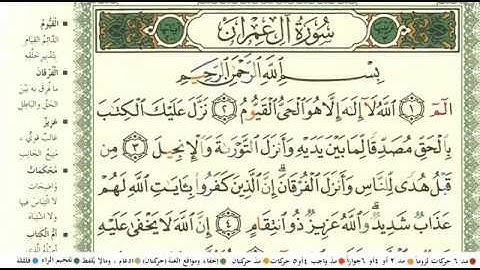 سُورَةُ آلِ عِمْرَانَ
بِسْمِ اللَّهِ الرَّحْمَٰنِ الرَّحِيمِ
الٓمٓ ۝١ ٱللَّهُ لَآ إِلَٰهَ إِلَّا هُوَ ٱلْحَىُّ ٱلْقَيُّومُ ۝٢ نَزَّلَ عَلَيْكَ ٱلْكِتَٰبَ
بِٱلْحَقِّ مُصَدِّقًا لِّمَا بَيْنَ يَدَيْهِ وَأَنزَلَ ٱلتَّوْرَىٰةَ وَٱلْإِنجِيلَ ۝٣ مِن
قَبْلُ هُدًى لِّلنَّاسِ وَأَنزَلَ ٱلْفُرْقَانَ ۗ إِنَّ ٱلَّذِينَ كَفَرُوا۟ بِـَٔايَٰتِ ٱللَّهِ لَهُمْ
عَذَابٌ شَدِيدٌ ۗ وَٱللَّهُ عَزِيزٌ ذُو ٱنتِقَامٍ ۝٤ إِنَّ ٱللَّهَ لَا يَخْفَىٰ عَلَيْهِ
القَيُّومُ
الدَّائِمُ القِيَامِ
بِتَدْبِيرِ خَلْقِهِ
الفُرْقَانَ
مَا فُرِقَ بِهِ بَيْنَ
الحَقِّ والبَاطِلِ
عَزِيزٌ
غَالِبٌ قَوِيٌّ،
مَنِيعُ الجَانِبِ
مُحْكَمَاتٌ
وَاضِحَاتٌ
لا الْتِبَاسَ فيها
ولا اشْتِبَاهَ
أُمُّ الكِتَابِ
مد ٦ حركات لزوما
مد ٢ أو ٤ أو ٦ جوازا
مد واجب ٤ أو ٥ حركات
مد حركتان
إخفاء، ومواقع الغنة (حركتان)
ادغام، ومالا يلفظ
تفخيم الراء
قلقلة